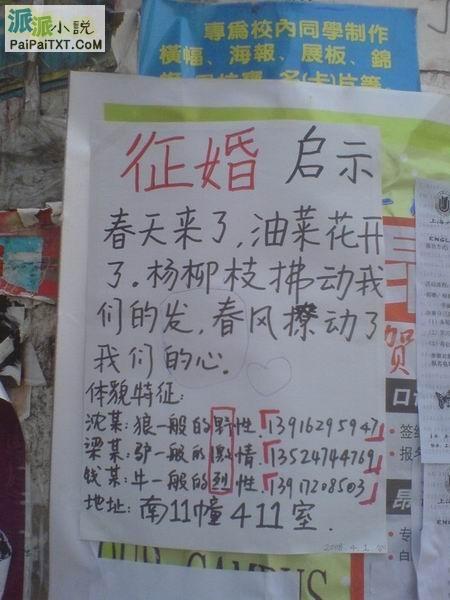 派派小説
PaiPaiTXT.Com
專為校內同學制作
橫幅、海報、展板、錦
名(卡)片等
征婚 启示
春天来了,油菜花开
了.杨柳枝拂动我
们的发,春风撩动了
我们的心。
体貌特征:
沈某:狼一般的野性.「13916295947」
梁某:驴一般的激情.「13524744769」
钱某:牛一般的烈性.「13917208503」
地址:南11幢411室.
2008.4.1
贺
口
签
报
昂
专
自
上海
ENGL
OUR CAMPUS